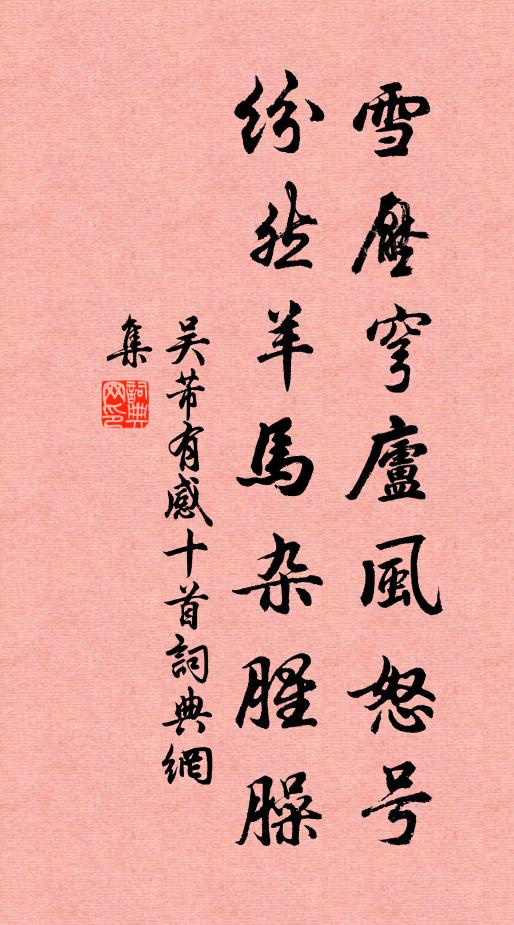 雪壓穹廬風怒号
纷然羊馬杂腥臊
吴芾有感十首詞典網
集
詞典
网印